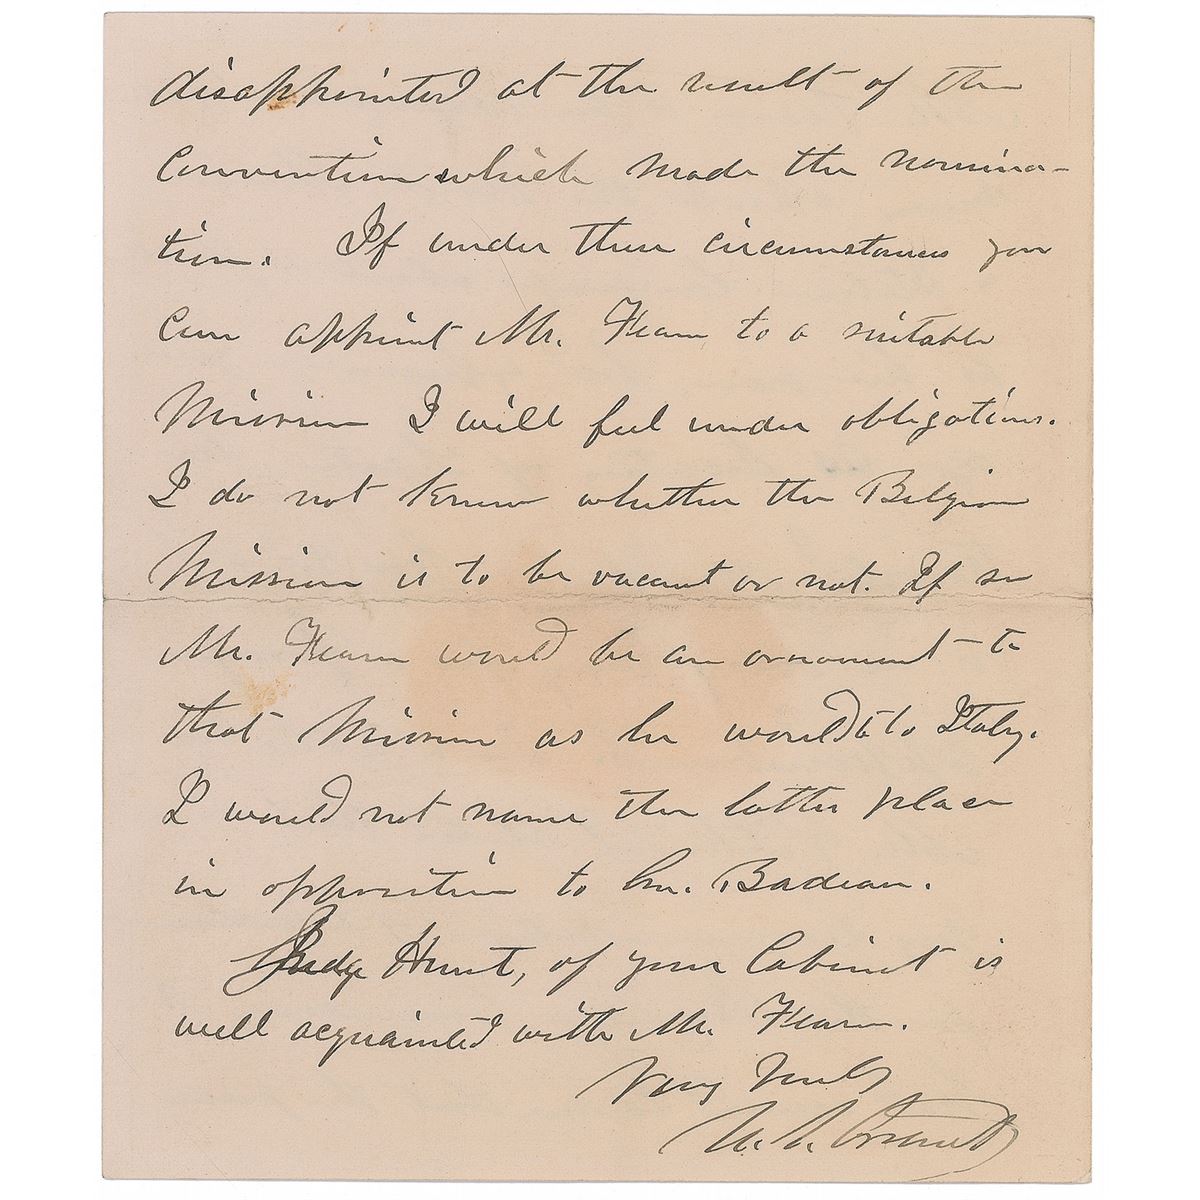 disappointed at the result of the
Convention which made the nomina-
tion. If under these circumstances you
can appoint Mr. Fearn to a suitable
Mission I will feel under obligations.
I do not know whether the Belgian
Mission is to be vacant or not. If so
Mr. Fearn would be an ornament to
that Mission as he would to Italy.
I would not name the latter place
in opposition to Gn. Badeau.
Judge Hunt, of your Cabinet is
well acquainted with Mr. Fearn.
Very Truly
U. S. Grant